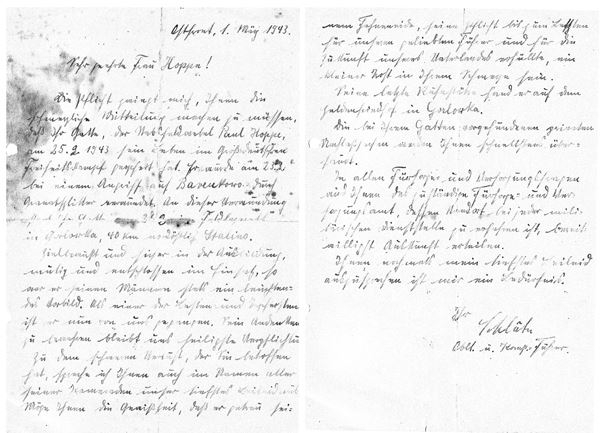 Ostfront, 1. März 1943.
Sehr geehrte Frau Hoppe!
Die Pflicht zwingt mich, Ihnen die
schmerzliche Mitteilung machen zu müssen,
daß Ihr Gatte, der Paul Hoppe,
am 25.2.1943 sein Leben im Großdeutschen
Freiheitskampf geopfert hat. Er wurde am
bei einem Angriff auf Barenkowo durch
verwundet. An dieser Verwundung
in Gorlowka, 40 km nördlich Stalino.
und sicher in der Ausbildung,
mutig und entschlossen im Einsatz, so
war er seinen Männern stets ein leuchten-
des Vorbild. Als einer der Besten und Tapfersten
ist er nun von uns gegangen. Sein Andenken
zu wachen bleibt uns heiligste Verpflichtung
Zu dem schweren Verlust, der Sie betroffen
hat, spreche ich Ihnen auch im Namen aller
seiner Kameraden unser tiefstes Beileid aus.
Möge Ihnen die Gewißheit, daß er getreu sei-
nem Fahneneide, seine Pflicht bis zum Letzten
für unseren geliebten Führer und für die
Zukunft unseres Vaterlandes erfüllte, ein
kleiner Trost in Ihrem Schmerze sein.
Seine letzte Ruhestätte fand er auf dem
Heldenfriedhof in Gorlowka.
Die bei Ihrem Gatten vorgefundenen
werden Ihnen schnellstens über-
sandt.
In allen Fürsorge- und Versorgungsfragen
wird Ihnen das zuständige Fürsorge- und Ver-
sorgungsamt, dessen Standort bei jeder mili-
tärischen Dienststelle zu erfahren ist, bereit-
willigst Auskunft erteilen.
Ihnen nochmals mein tiefstes Beileid
auszusprechen ist mir ein Bedürfnis.
Ihr
Oblt. u. Komp. Führer.